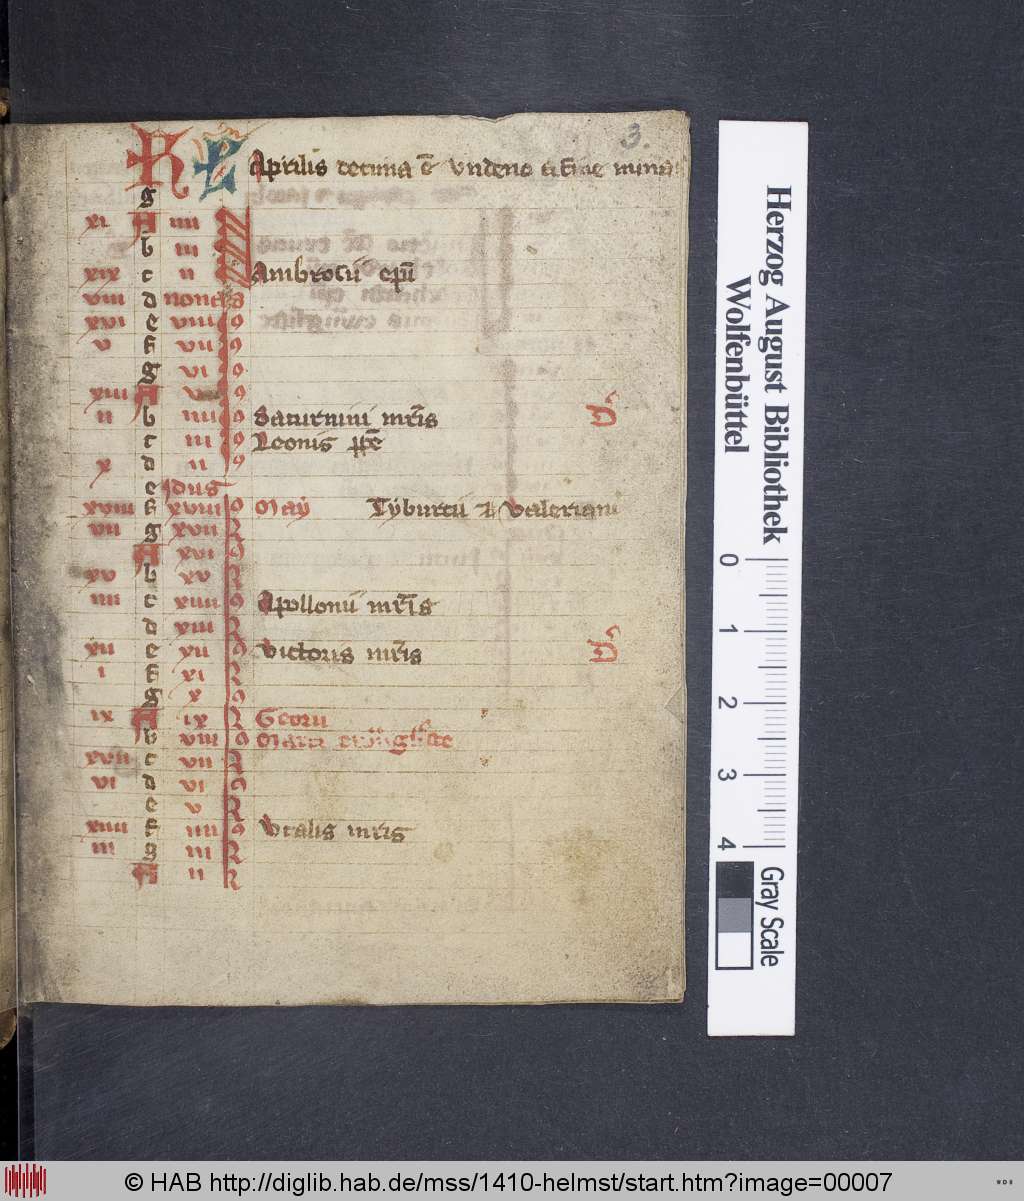 3.
KL Aprilis decima ē undeno a fine minat
g
xi A iiii
b iii
xix c ii Ambrocii epī
viii d nonas
xvi e viii 9
v f vii 9
g vi 9
xiii A v 9
ii b iiii 9 Saturnini mr̄is
c iii 9 Leonis pp̄e
x d ii 9
e Idus
xviii f xviii 9 May Tyburcii z Valeriani
vii g xvii R
A xvi 9
xv b xv R
iiii c xiiii 9 Apollonii mr̄is
d xiii R
xii e xii 9 Victoris mr̄is
i f xi R
g x 9
ix A ix R Georii
b viii 9 Marci
xvii c vii R
vi d vi 9
e v R
xiiii f iiii 9 Vitalis mr̄is
iii g iii R
A ii R
Herzog August Bibliothek
Wolfenbüttel
0 1 2 3 4
Gray Scale
© HAB http://diglib.hab.de/mss/1410-helmst/start.htm?image=00007